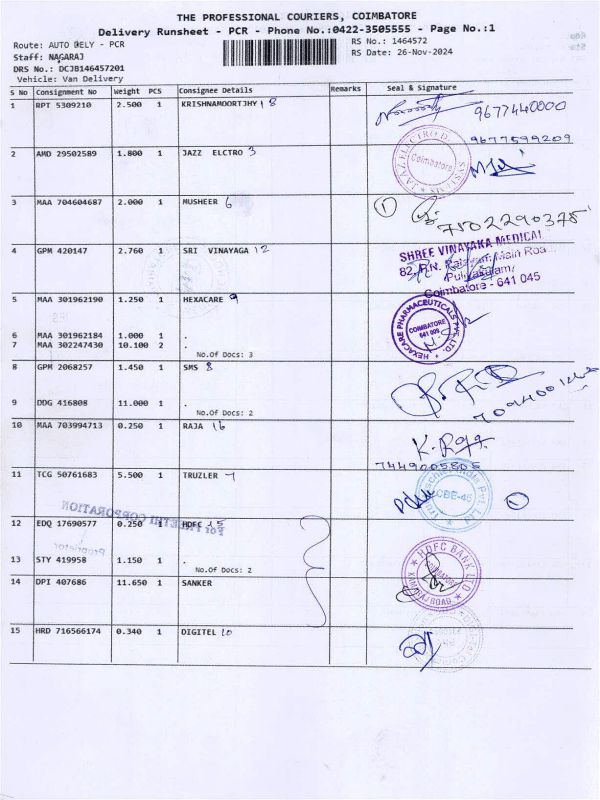 THE PROFESSIONAL COURIERS, COIMBATORE
Delivery Runsheet - PCR - Phone No.:0422-3505555 - Page No.:1
Route: AUTO DELY - PCR
RS No.: 1464572
Staff: NAGARAJ
RS Date: 26-Nov-2024
DRS No.: DCJB146457201
Vehicle: Van Delivery
S No Consignment No Weight PCS Consignee Details Remarks Seal & Signature
1 RPT 5309210 2.500 1 KRISHNAMOORTJHY 18 9677440000
9677599209
2 AMD 29502589 1.800 1 JAZZ ELCTRO 3
Coimbatore
3 MAA 704604687 2.000 1 MUSHEER 6 1
7502290375
4 GPM 420147 2.760 1 SRI VINAYAGA 12
SHREE VINAYAKA MEDICAL
Puliyakulam,
Coimbatore - 641 045
5 MAA 301962190 1.250 1 HEXACARE 9
HEXACARE PHARMACEUTICALS PVT. LTD.
COIMBATORE
6 MAA 301962184 1.000 1 .
7 MAA 302247430 10.100 2 .
No.Of Docs: 3
8 GPM 2068257 1.450 1 SMS 8
9 DDG 416808 11.000 1 .
No.Of Docs: 2
10 MAA 703994713 0.250 1 RAJA 16
K. Raja
11 TCG 50761683 5.500 1 TRUZLER 7
CBE-45
For PREETHI CORPORATION
Proprietor
12 EDQ 17690577 0.250 1 HDFC 15
13 STY 419958 1.150 1 .
No.Of Docs: 2
HDFC BANK LTD
14 DPI 407686 11.650 1 SANKER
15 HRD 716566174 0.340 1 DIGITEL 10